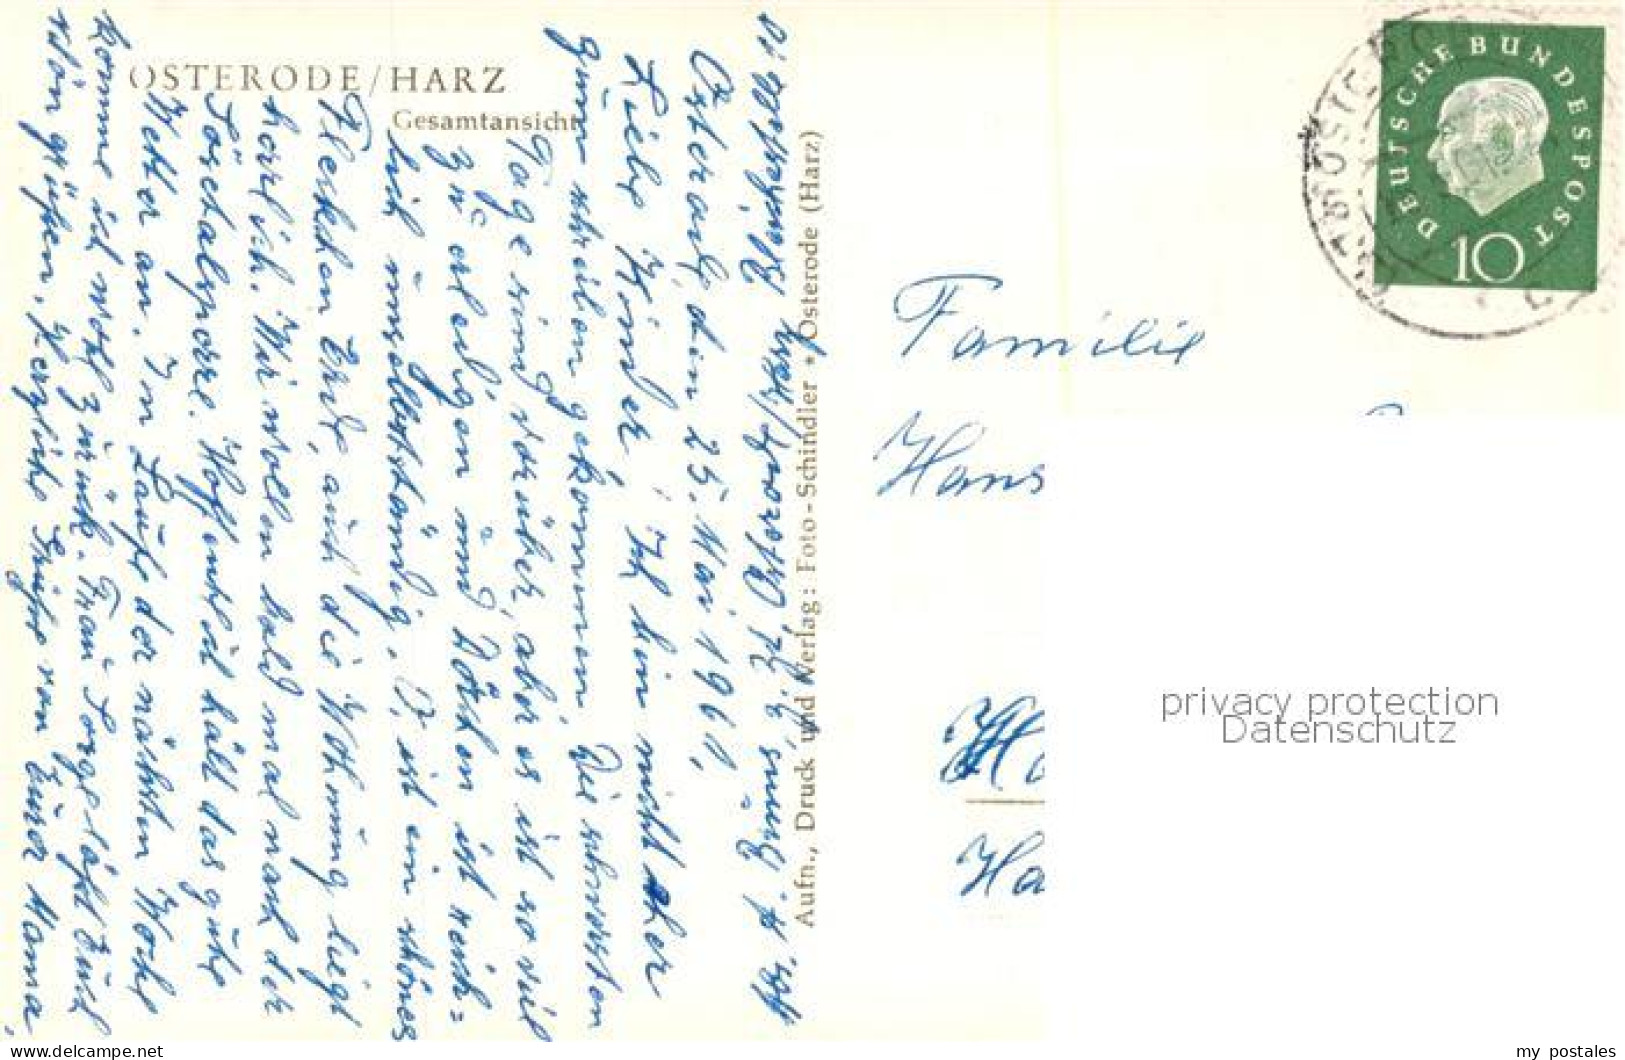 OSTERODE/HARZ
Gesamtansicht
Osterode, den 25. Mai 1961,
Liebe Kinder, Ich bin nicht eher
zum schreiben gekommen, Die schwersten
Tage sind vorüber, aber es ist so viel
zu erledigen und Dörchen ist reich=
lich unselbstständig. O, ist ein schönes
Fleckchen Erde, auch die Wohnung liegt
herrlich. Wir wollen bald mal nach der
Sösetalsperre. Hoffentlich hält das gute
Wetter an. Im Laufe der nächsten Woche
komme ich wohl zurück. Frau Sorge läßt Euch
schön grüßen, Herzliche Grüße von Eurer Mama,
Aufn., Druck und Verlag: Foto-Schindler • Osterode (Harz)
DEUTSCHE BUNDESPOST
10
Familie
Hans
Ha
privacy protection
Datenschutz
my_postales
www.delcampe.net